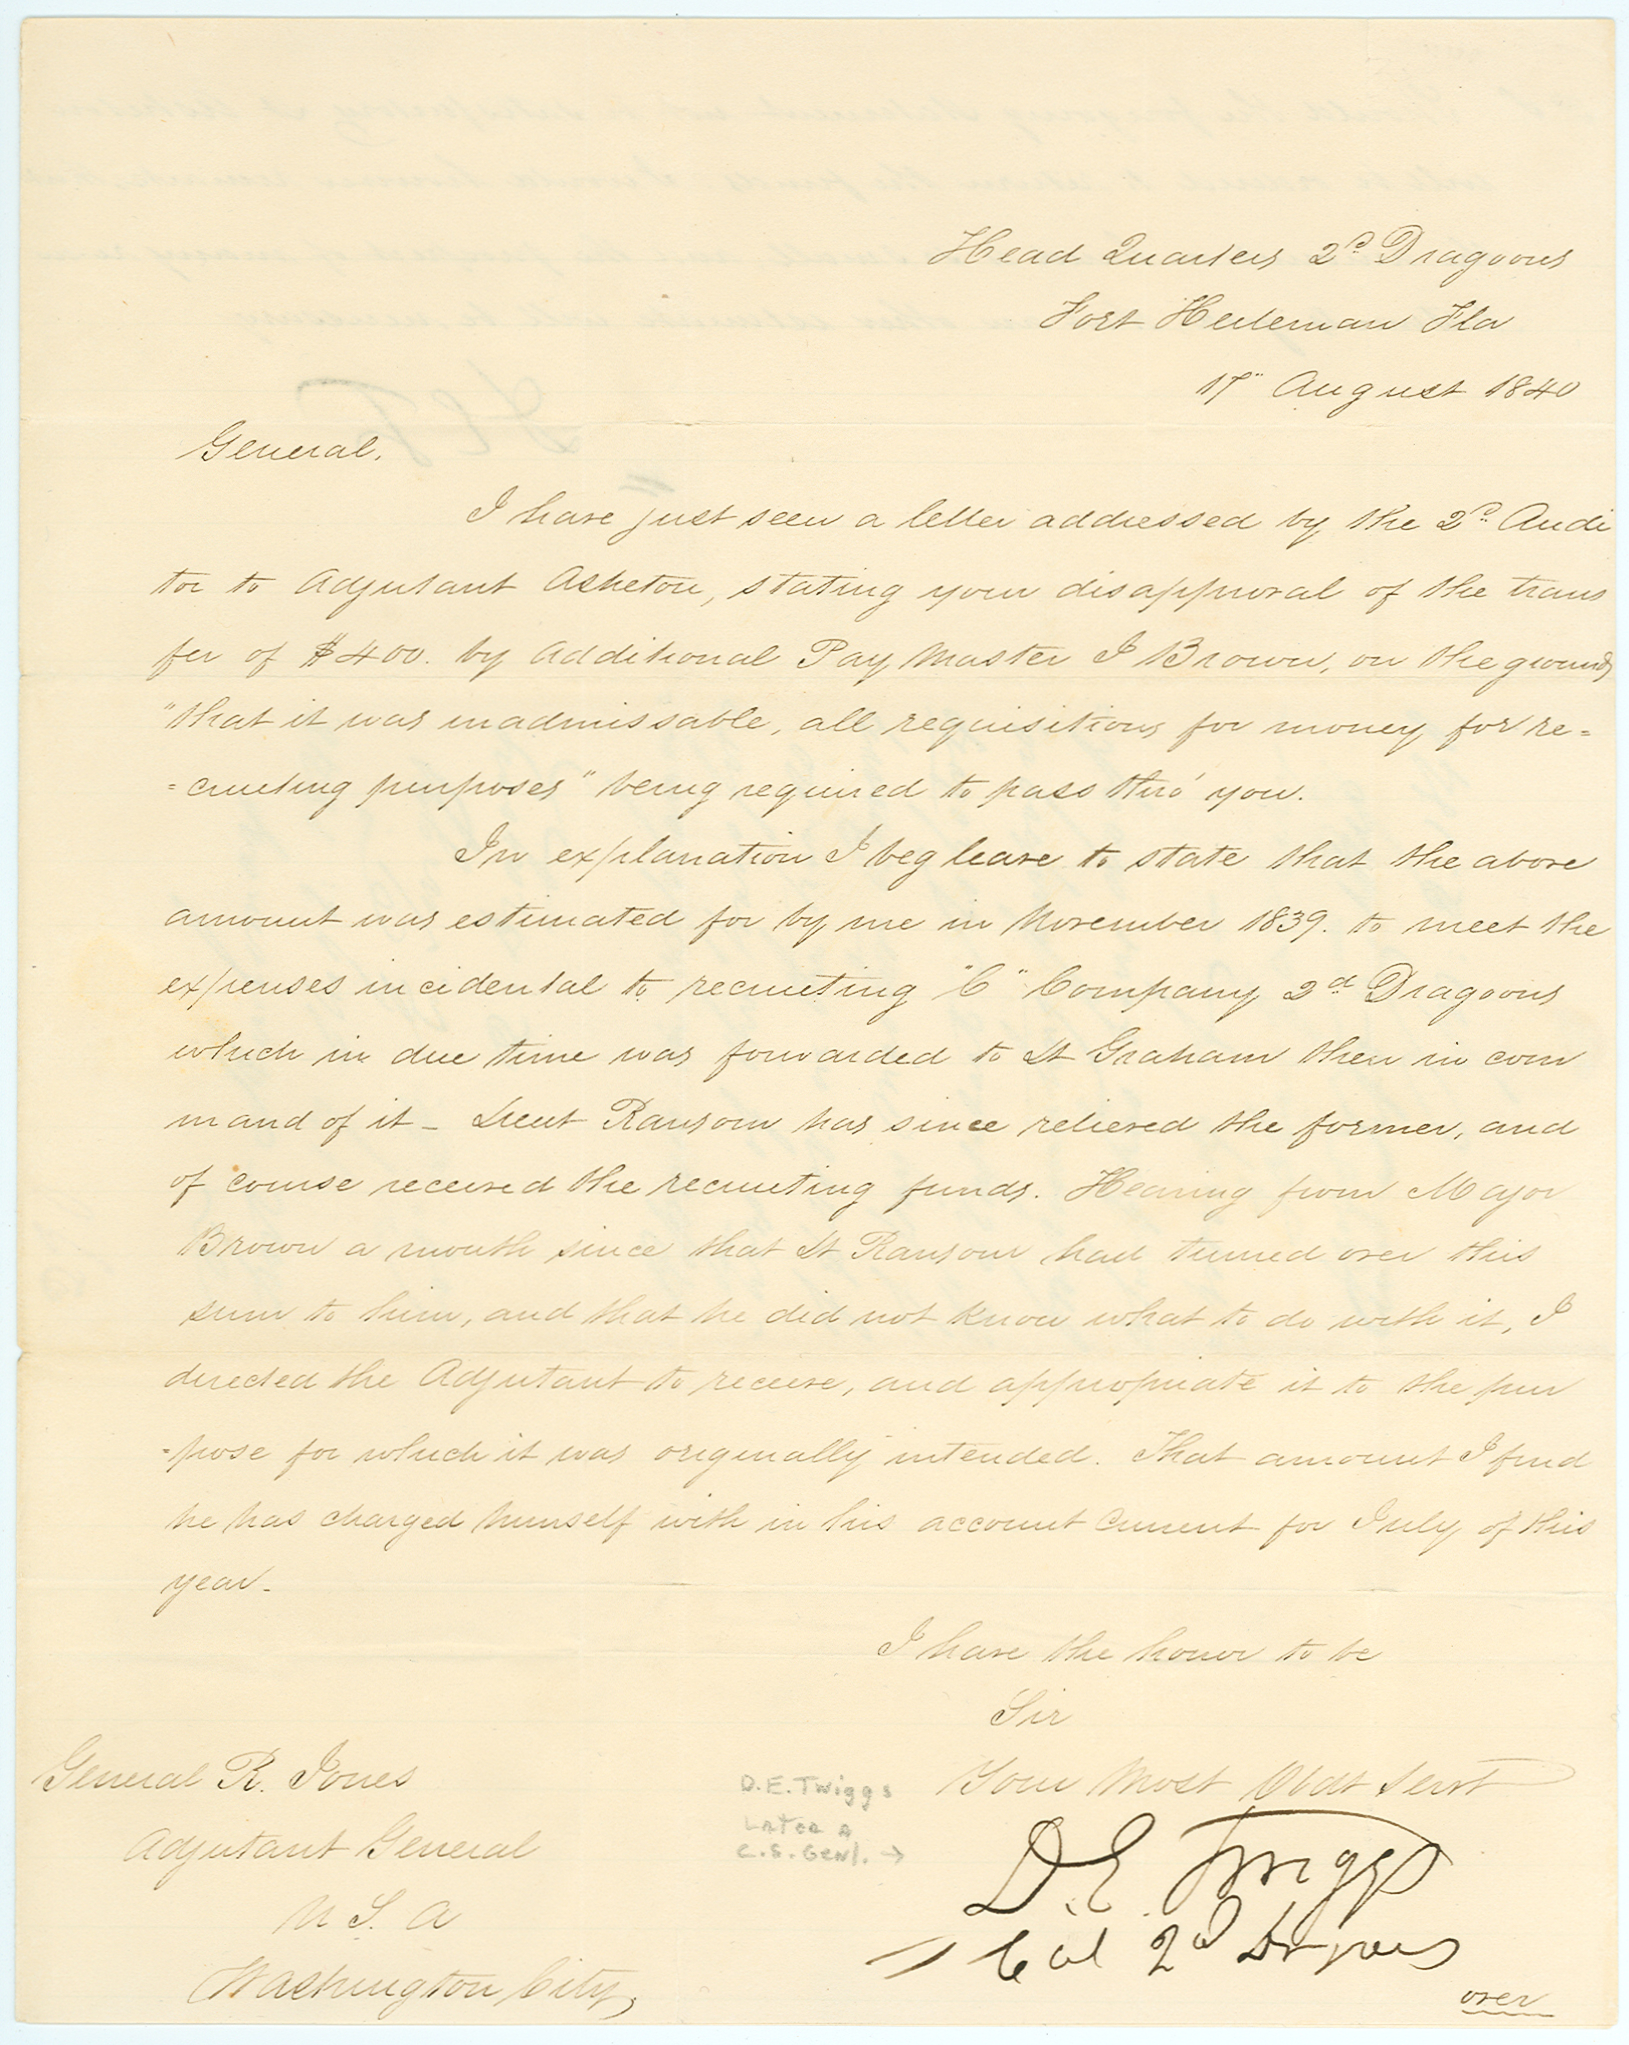 Head Quarters 2d Dragoons
Fort Heileman Fla
17" August 1840
General.
I have just seen a letter addressed by the 2d Audi
tor to Adjutant Asheton, stating your disapproval of the trans
fer of $400. by Additional Pay Master J Brown, on the grounds
"that it was inadmissable, all requisitions for money for re=
=cruiting purposes" being required to pass thro' you.
In explanation I beg leave to state that the above
amount was estimated for by me in November 1839. to meet the
expenses incidental to recruiting "C" Company 2d Dragoons
which in due time was forwarded to Lt Graham then in com
mand of it - Lieut Ransom has since relieved the former, and
of course received the recruiting funds. Hearing from Major
Brown a month since that Lt Ransom had turned over this
sum to him, and that he did not know what to do with it, I
directed the Adjutant to receive, and appropriate it to the pur
=pose for which it was originally intended. That amount I find
he has charged himself with in his account current for July of this
year -
I have the honor to be
Sir
Your Most Obdt Servt
D. E. Twiggs
Col 2d Dragoons
over
D.E. Twiggs
Later a
C.S. Genl. →
General R. Jones
Adjutant General
U S. A
Washington City